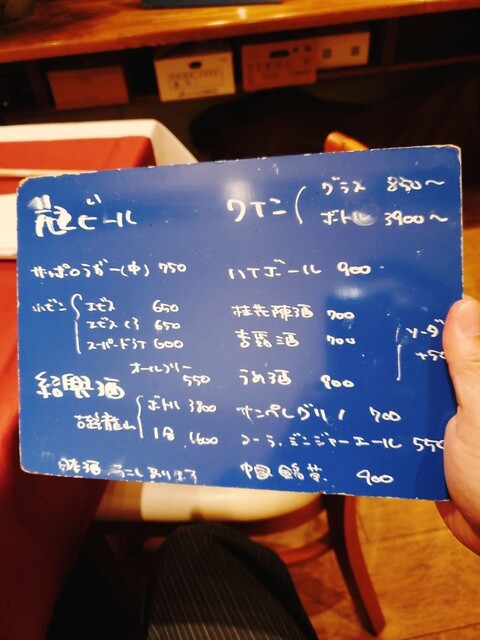 ビール
サッポロラガー(中) 750
小ビン
エビス 650
エビス くろ 650
スーパードライ 600
オールフリー
550
紹興酒
古越龍山
ボトル 3800
1合 1600
ワイン
グラス 850〜
ボトル 3900〜
ハイボール 900
桂花陳酒 700
杏露酒 700
うめ酒 900
ソーダ
+50
サンペレグリノ 700
コーラ、ジンジャーエール 550
中国 900